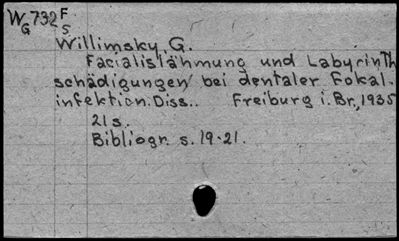 W. 732 F
G S
Willimsky, G.
Facialislähmung und Labyrinth
schädigungen bei dentaler Fokal-
infektion. Diss.. Freiburg i. Br., 1935
21 s.
Bibliogr. s. 19-21.